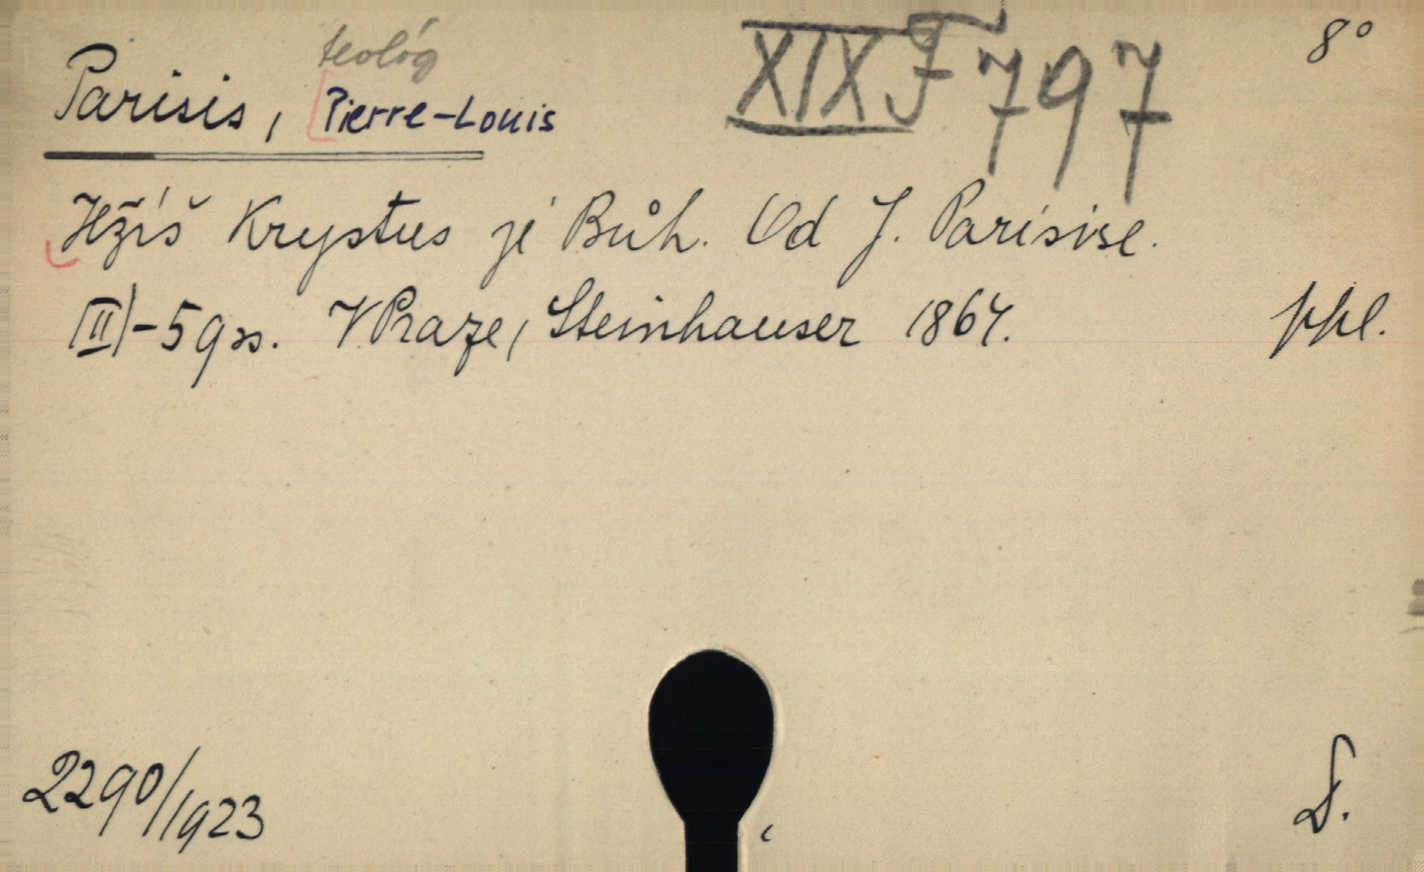 teológ
XIX F 797
8°
Parisis, Pierre-Louis
Ježíš Krystus je Bůh. Od J. Parisise.
(II)-59 s. V Praze, Steinhauser 1864.
ppl.
2290/1923